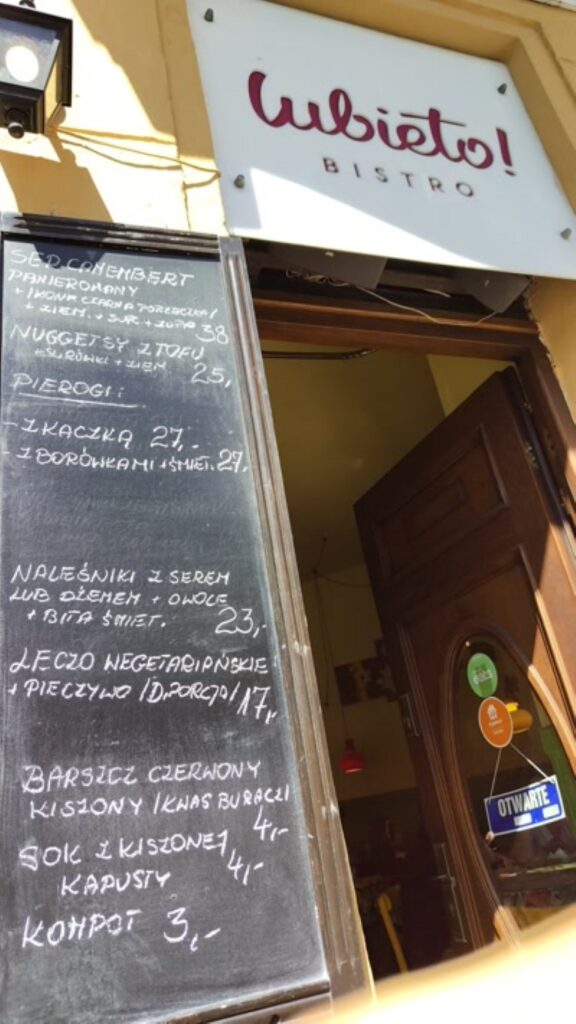 lubieto!
BISTRO
SER CAMEMBERT
PANIEROWANY
+ /KONF. CZARNA PORZECZKA/
+ ZIEM. + SUR. 38
NUGGETSY Z TOFU
+ SURÓWKI + ZIEM 25,
PIEROGI:
- Z KACZKĄ 27,-
- Z BORÓWKAMI + ŚMIET. 27,
NALEŚNIKI Z SEREM
LUB DŻEMEM + OWOCE
+ BITA ŚMIET. 23,-
LECZO WEGETARIAŃSKIE
+ PIECZYWO /D.PORCJA/ 17,-
BARSZCZ CZERWONY
KISZONY /KWAS BURACZ/
4,-
SOK Z KISZONEJ
KAPUSTY 4,-
KOMPOT 3,-
OTWARTE